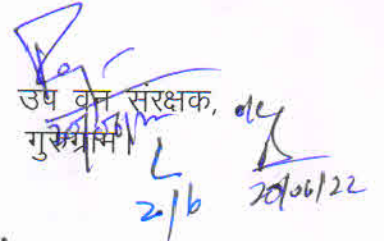 उप वन संरक्षक,
गुरुग्राम।
20/6
20/06/22